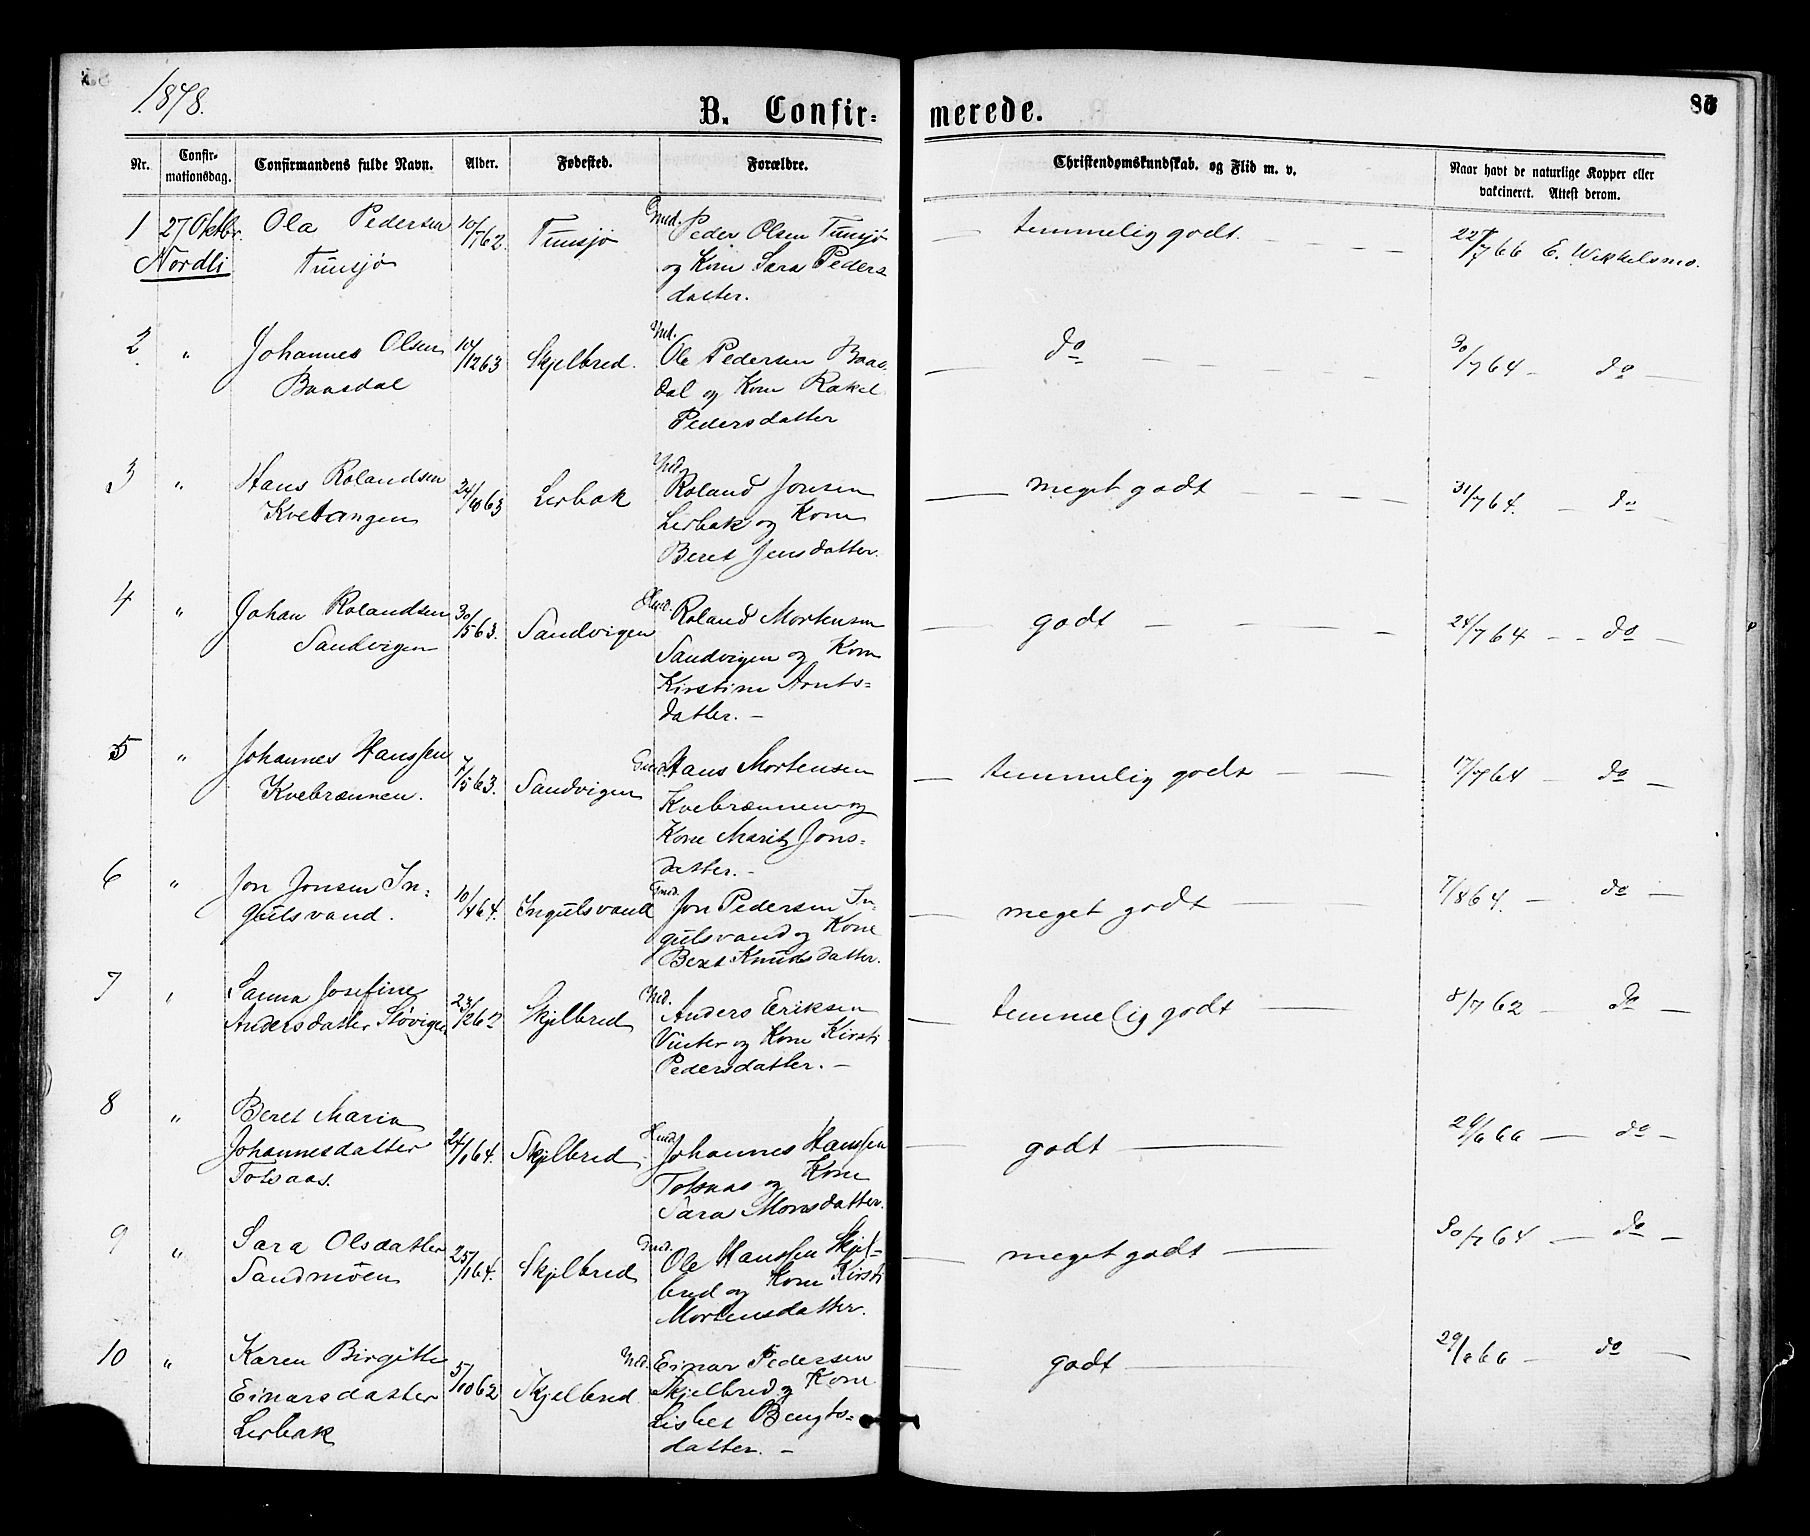 1878.
B. Confirmerede.
Nr.
Confirmationsdag.
Confirmandens fulde Navn.
Alder.
Fødested.
Forældre.
Christendomskundskab. og Flid m. v.
Naar havt de naturlige Kopper eller
vakcineret. Attest derom.
1 27 Oktbr. Ola Pedersen 10/7 62. Tunsjø Gmd. Peder Olsen Tunsjø — temmelig godt. — 22/7 66 E. Wekkelsmo.
Nordli Tunsjø og Kone Sara Peders
datter.
2 " Johannes Olsen 14/12 63 Skjelbred. Ind. Ole Pedersen Baas — do — 30/7 64 — do —
Baasdal dal og Kone Rakel
Pedersdatter
3 " Hans Rolandsen 24/10 63 Lerbak Ind. Roland Jonsen — meget godt — 31/7 64. — do —
Kvetangen Lerbak og Kone
Beret Jensdatter.
4 " Johan Rolandsen 30/5 63. Sandvigen Hmd. Roland Mortensen — godt — 24/7 64 — do —
Sandvigen Sandvigen og Kone
Kirstine Arnts=
datter. —
5 " Johannes Hanssen 7/5 63. Sandvigen Hans Mortensen — temmelig godt — 17/7 64 — do —
Kvebrænnen. Kvebrænnen og
Kone Marit Jons=
datter. —
6 " Jon Jonsen In= 10/4 64. Ingulsvand Gmd. Jon Pedersen In= — meget godt — 7/8 64. — do —
gulsvand. gulsvand og Kone
Beret Knudsdatter.
7 " Sanna Josefine Ind. Anders Eriksen — temmelig godt — 8/7 62 — do —
Andersdatter Støvigen 23/12 62 Skjelbred Vinter og Kone Kirsti
Pedersdatter. —
8 " Beret Maria
Johannesdatter 24/1 64. Skjelbred Hmd. Johannes Hanssen — godt — 29/6 66 — do —
Totsaas. Totsaas og Kone
Sara Monsdatter.
9 " Sara Olsdatter 25/1 64. Skjelbred Gmd. Ole Hanssen Skjel= — meget godt — 30/7 64 — do —
Sandmoen bred og Kone Kirsti
Mortensdatter.
10 " Karen Birgitte 5/10 62 Skjelbred Ind. Einar Pedersen — godt — 29/6 66 — do —
Einarsdatter Skjelbred og Kone
Lerbak Lisbet Bengts=
datter. —